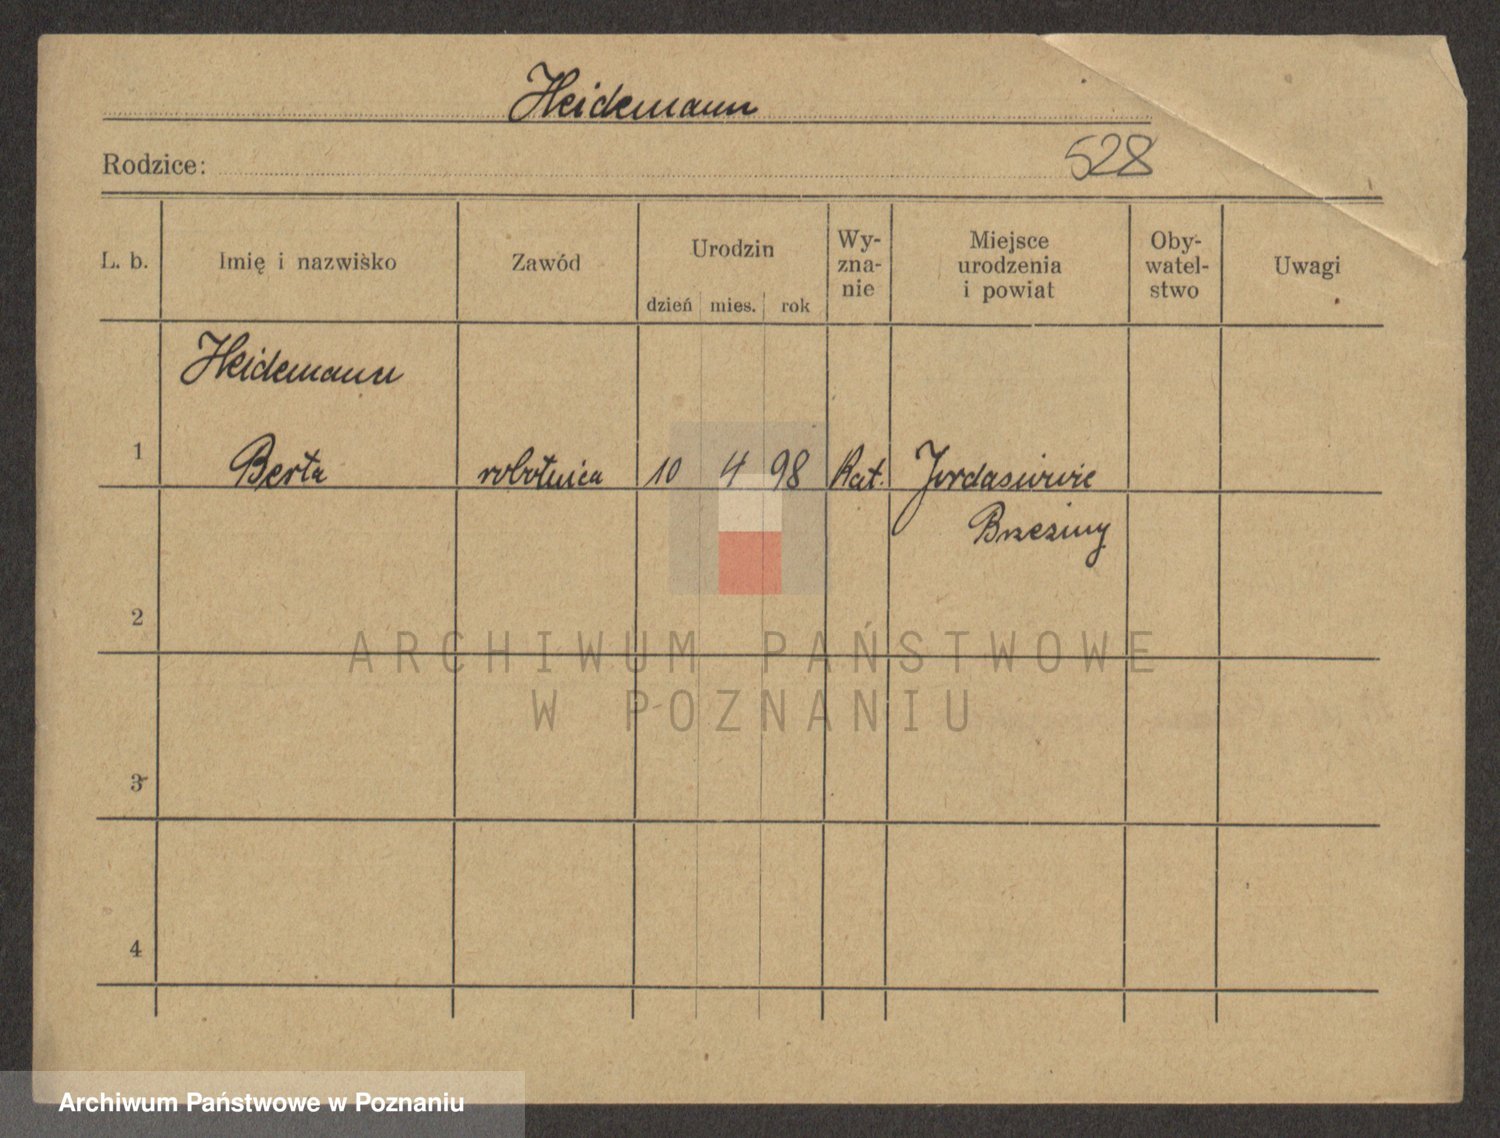 Heidemann
Rodzice:
528
L. b. Imię i nazwisko Zawód Urodzin Wy-zna-nie Miejsce urodzenia i powiat Oby-watel-stwo Uwagi
dzień mies. rok
Heidemann
1 Berta robotnica 10 4 98 Kat.
Brzeziny
2
3
4
ARCHIWUM PAŃSTWOWE
W POZNANIU
Archiwum Państwowe w Poznaniu